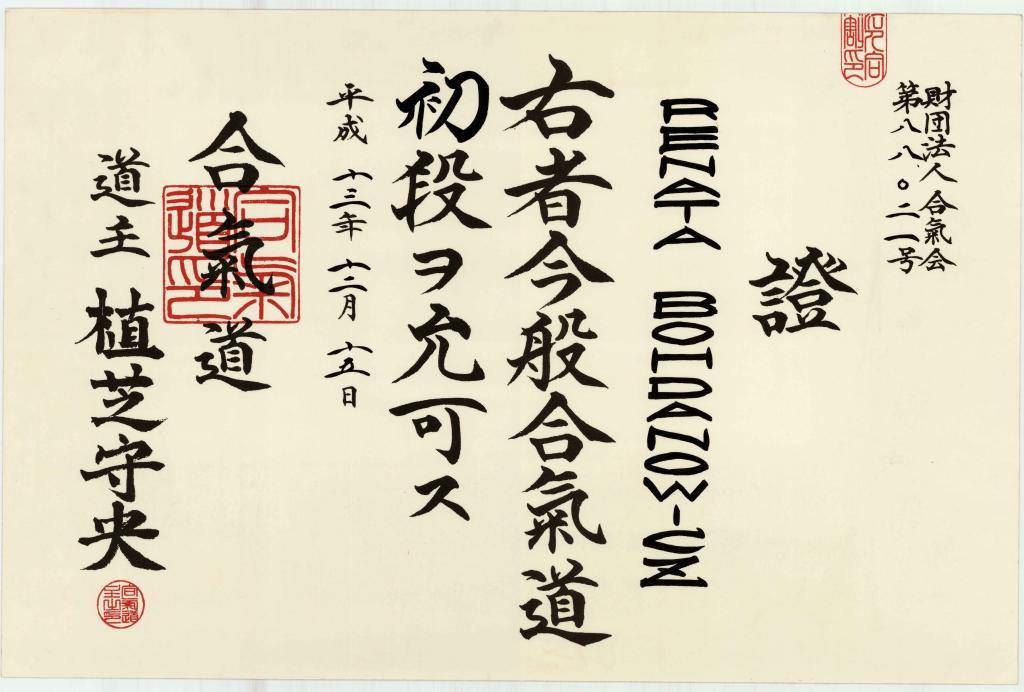 財団法人合氣会
第八八〇二一号
證
RENATA BOHDANOWICZ
右者今般合氣道
初段ヲ允可ス
平成十三年十二月十五日
合氣道
合氣道印
道主 植芝守央